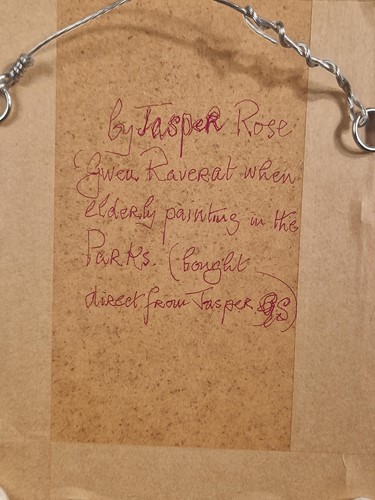 by Jasper Rose
Gwen Raverat when
elderly painting in the
Parks. (bought
direct from Jasper